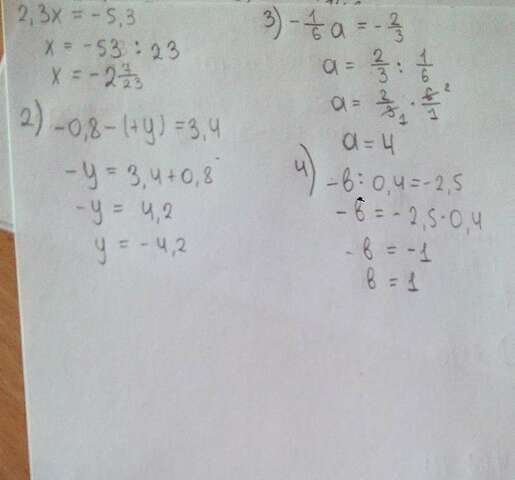 2,3x = -5,3
x = -53 : 23
x = -2 7/23
2) -0,8 - (+y) = 3,4
-y = 3,4 + 0,8
-y = 4,2
y = -4,2
3) -1/6 a = -2/3
a = 2/3 : 1/6
a = 2/3 1 · 6/1 2
a = 4
4) -в : 0,4 = -2,5
-в = -2,5 · 0,4
-в = -1
в = 1